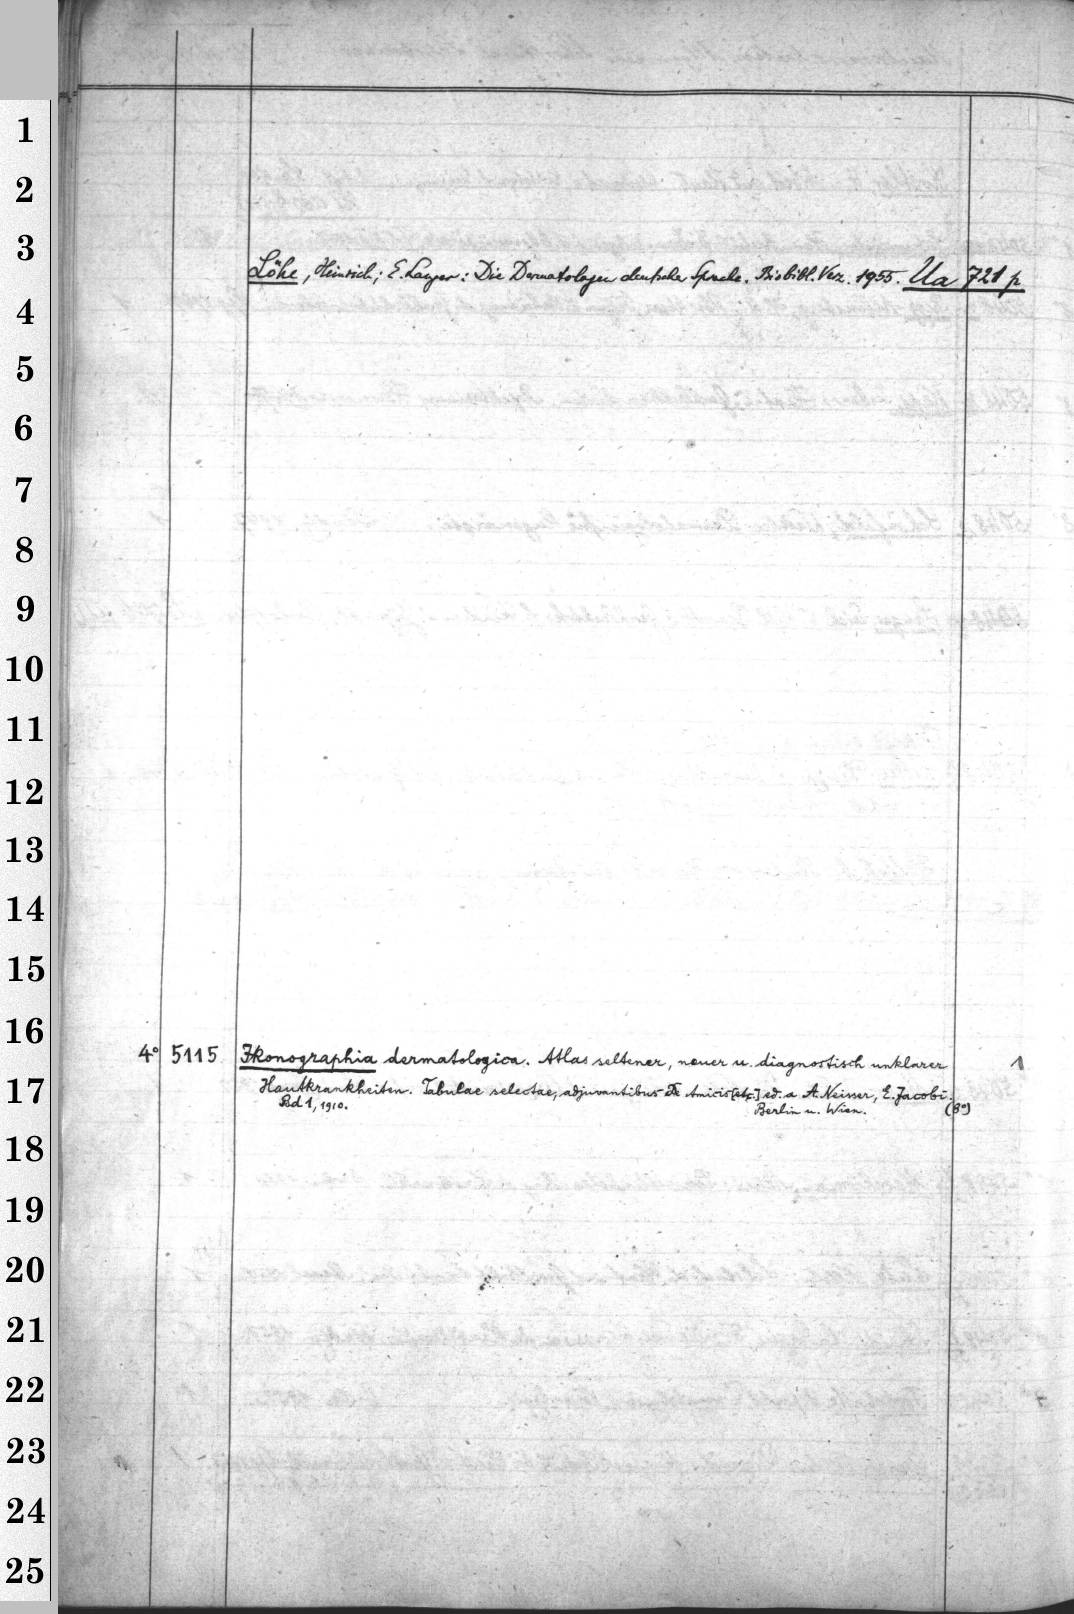 1
2
3
Löhe, Heinrich; E. Langer: Die Dermatologen deutscher Sprache. Biobibl. Verz. 1955. Ua 721 p
4
5
6
7
8
9
10
11
12
13
14
15
16
4° 5115 Ikonographia dermatologica. Atlas seltener, neuer u. diagnostisch unklarer 1
17
Hautkrankheiten. Tabulae selectae, adjuvantibus De Amicis [etc.] ed. a A. Neisser, E. Jacobi.
Bd 1, 1910. Berlin u. Wien. (8°)
18
19
20
21
22
23
24
25